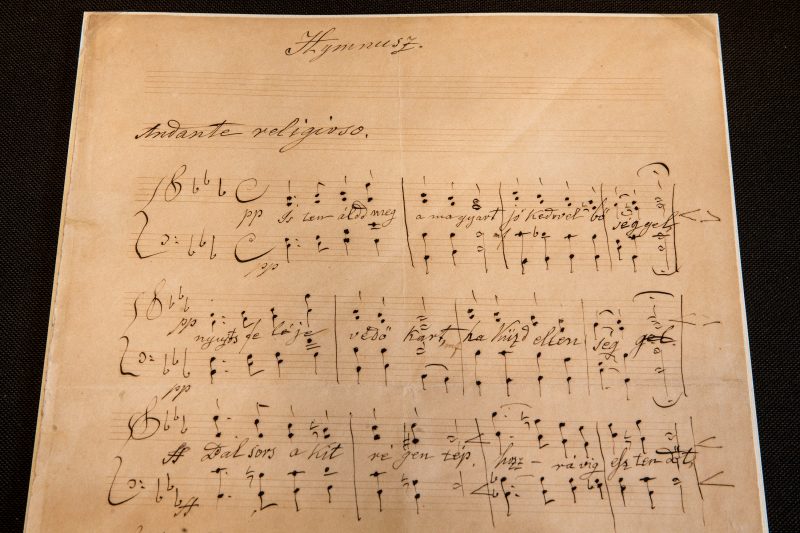 Hymnusz.
Andante religioso.
pp Is ten áldd meg a magyart jó kedvel bő séggel
pp
pp nyujts fe léje védő kart, ha küzd ellen ség gel
pp
ff Bal sors a kit ré gen tép, hozz - rá víg esz ten dőt,
ff